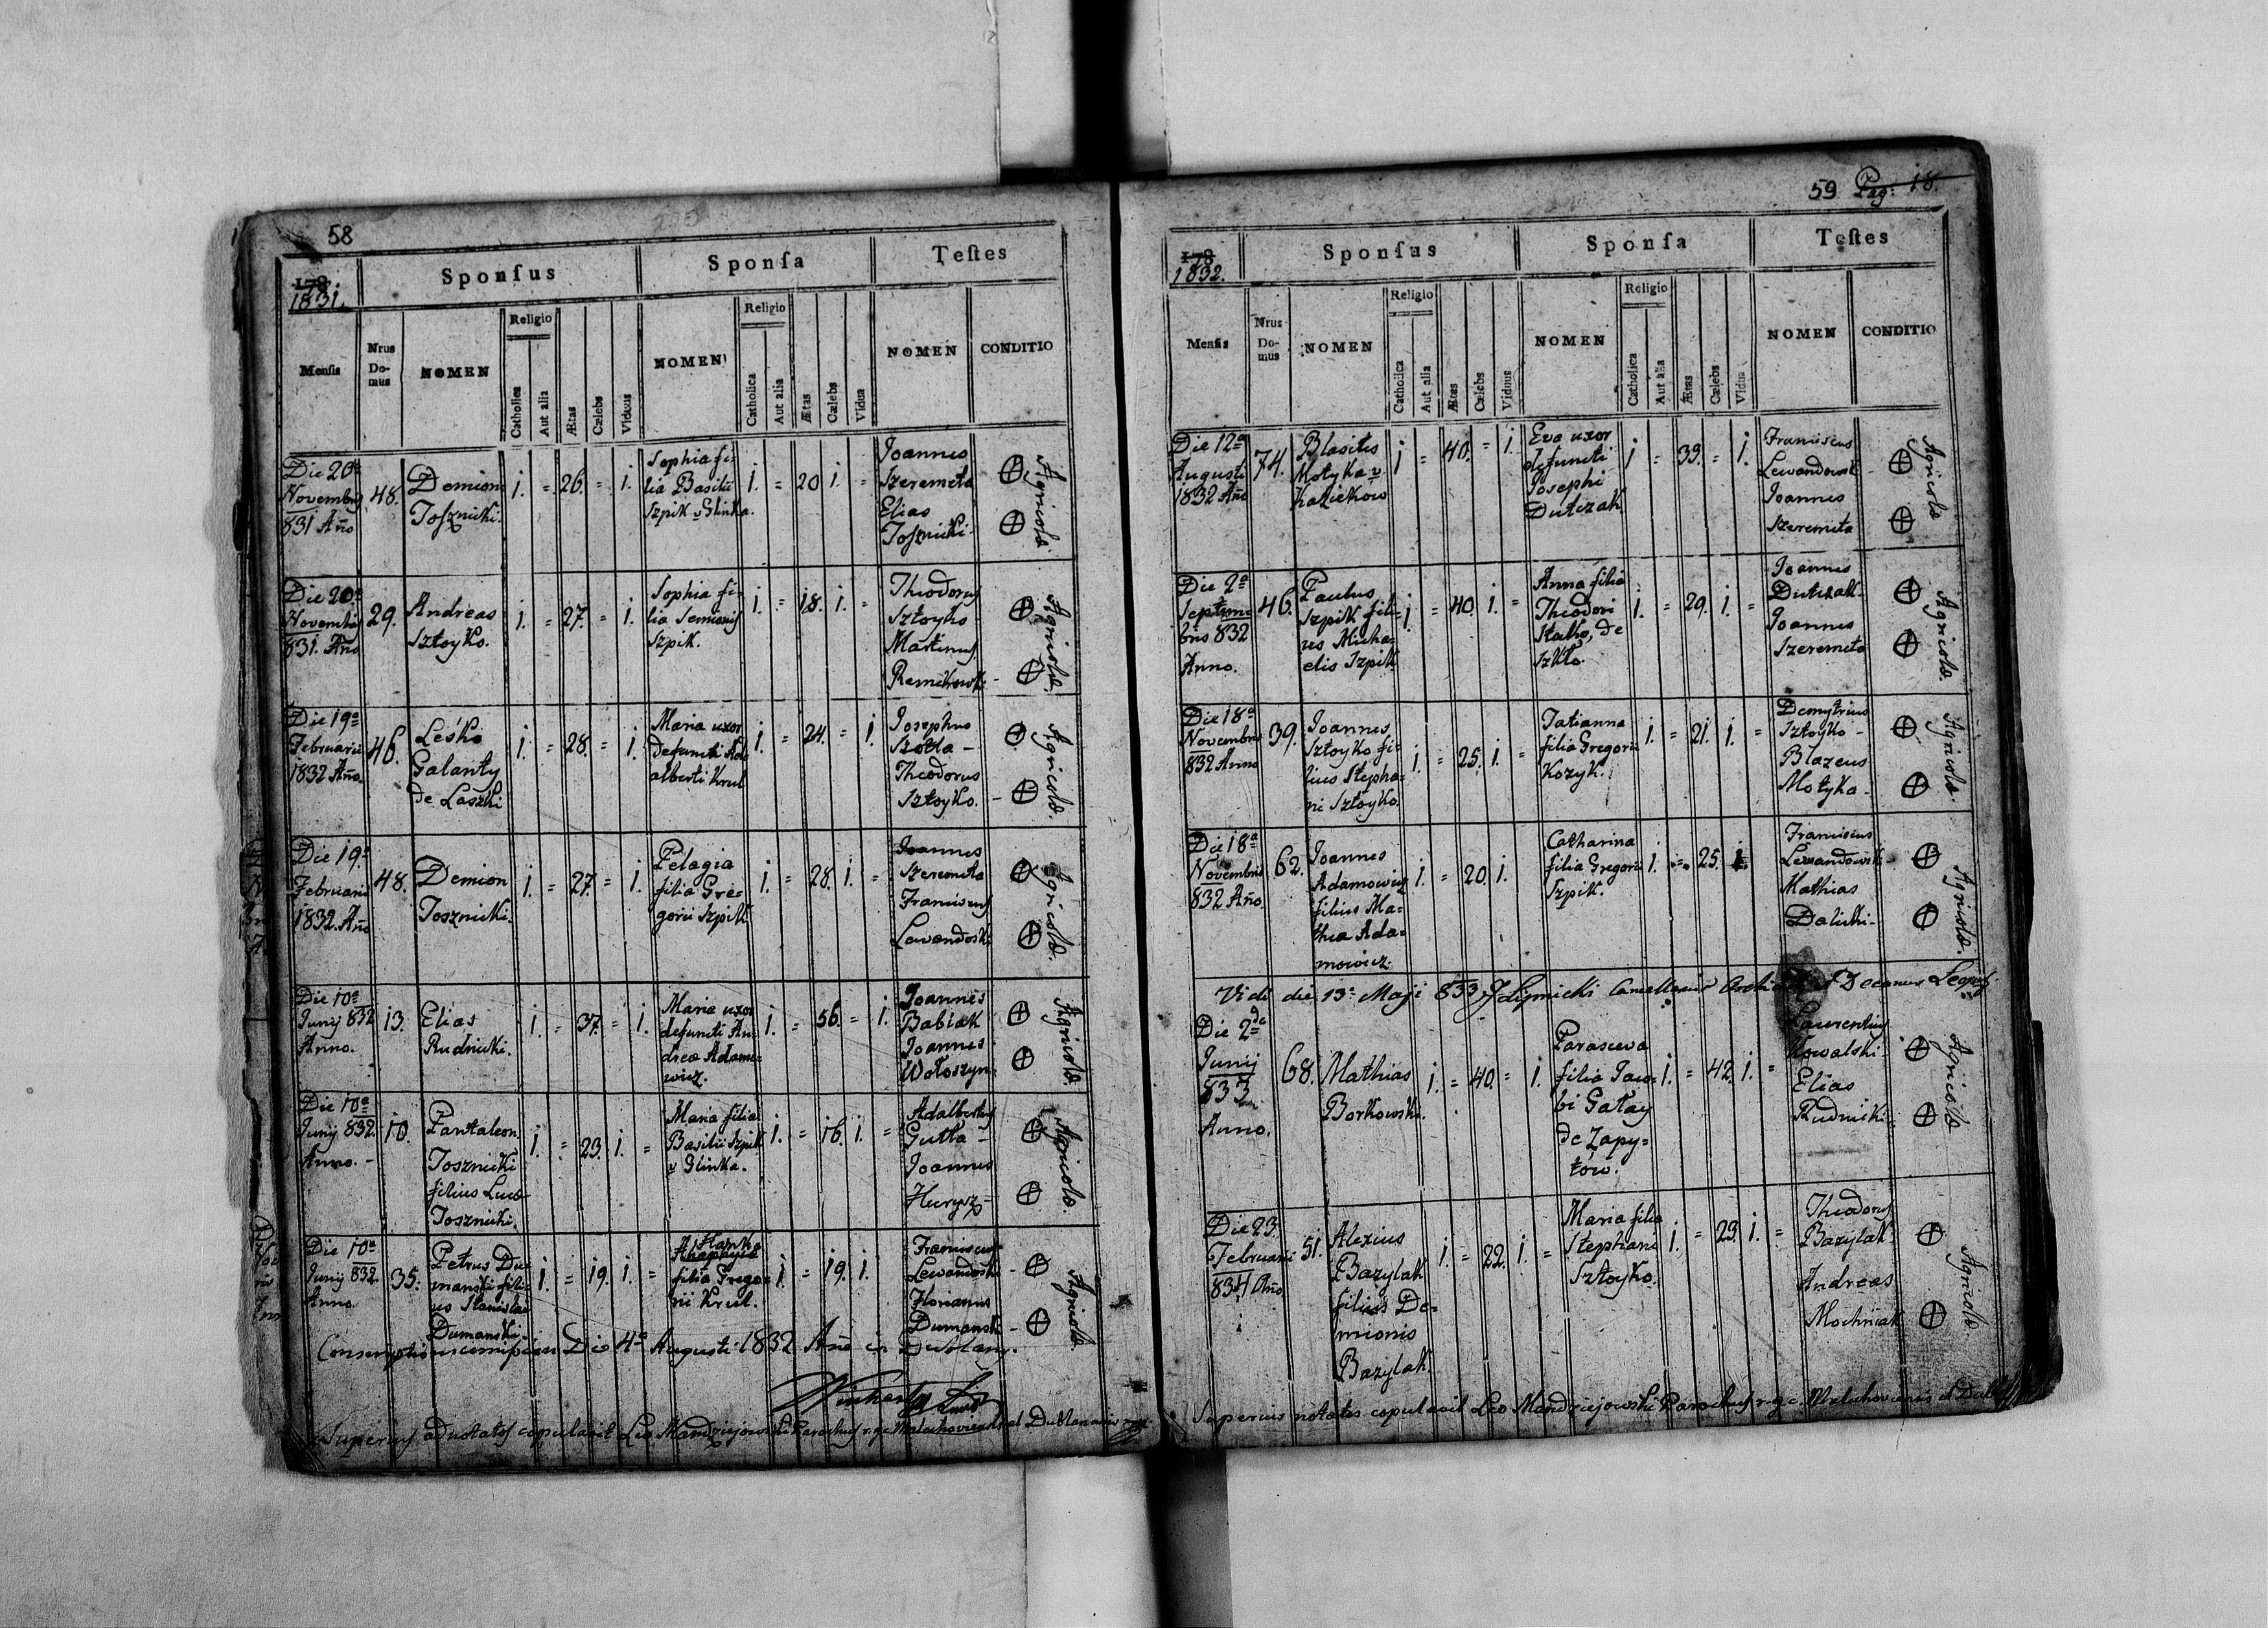 58
1831.
Sponſus
Sponſa
Teſtes
Menſis
Nrus Do-mus
NOMEN
Religio
Catholica
Aut alia
Ætas
Cælebs
Viduus
NOMEN
Religio
Catholica
Aut alia
Ætas
Cælebs
Vidua
NOMEN
CONDITIO
Die 20a
Novembris
831 Año
48.
Demion
Tosznicki.
i. = 26. = i.
Sophia fi-
lia Basilii
Szpik v Glinka.
i. = 20 i. =
Joannes
Szeremeta
Elias
Tosznicki
Agricolæ.
Die 20a
Novembris
831. Año
29.
Andreas
Sztoyko.
i. = 27. = i.
Sophia fi-
lia Semionis
Szpik.
i. = 18. i. =
Theodorus
Sztoyko
Martinus
Agricolæ.
Die 19a
Februarii
1832 Año.
46.
Leśko
Galanty
de Laszki
i. = 28. = i.
Maria uxor
defuncti Adal
alberti Krul
i. = 24. = i.
Josephus
Theodorus
Sztoyko.
Agricolæ.
Die 19a
Februarii
1832. Año
48.
Demion
Tosznicki.
i. = 27. = i.
Pelagia
filia Gre-
gorii Szpik.
i. = 28. i. =
Joannes
Szeremeta
Franciscus
Lewandoski
Agricolæ.
Die 10a
Junij 832
Anno.
13.
Elias
Rudnicki.
i. = 37. = i.
Maria uxor
defuncti An
dreæ Adamo-
wicz.
i. = 56. = i.
Joannes
Babiak
Joannes
Wołoszyn
Agricolæ.
Die 10a
Junij 832.
Anno. -
10.
Pantaleon
Tosznicki
filius Lucæ
Tosznicki.
i. = 23. i. =
Maria filia
Basilii Szpik
v Glinka.
i. = 16. i. =
Adalbertus
Gutta -
Joannes
Hurysz -
Agricolæ.
Die 10a
Junij 832.
Anno.
35.
Petrus Du
manski fili-
us Stanislai
Dumanski.
i. = 19. i. =
Hanka
filia Grego-
rii Krul.
i. = 19. i.
Franciscus
Lewandoski
Florianus
Dumanski
Agricolæ.
Die 4a Augusti 1832 Año in Dublany.
Superius adnotatos copulavit Leo Mandziejowski Parochus r.g.c. Malechoviensis et Dublanensis
59 Pag: 18.
1832.
Sponſus
Sponſa
Teſtes
Menſis
Nrus Do-mus
NOMEN
Religio
Catholica
Aut alia
Ætas
Cælebs
Viduus
NOMEN
Religio
Catholica
Aut alia
Ætas
Cælebs
Vidua
NOMEN
CONDITIO
Die 12a
Augusti
1832 Año
74.
Blasius
Motyka v
i = 40. = i.
Eva uxor
defuncti
Josephi
Dutczak
i = 39. = i.
Franciscus
Lewandowski
Joannes
Szeremeta
Agricolæ
Die 2a
Septem-
bris 832
Anno.
46.
Paulus
Szpik fili-
us Micha-
elis Szpik
i = 40. i. =
Anna filia
Theodori
de
Szkło.
i. = 29. i. =
Joannes
Dutczak
Joannes
Szeremeta
Agricolæ.
Die 18a
Novembris
832 Anno
39.
Joannes
Sztoyko fi-
lius Stepha-
ni Sztoyko.
i. = 25. i. =
Tatianna
filia Gregorii
Kozyk.
i. = 21. i. =
Demytrius
Sztoyko -
Blazeus
Motyka -
Agricolæ.
Die 18a
Novembris
832 Año.
62.
Joannes
Adamowicz
filius Ma-
thia Ada-
mowicz.
i. = 20. i.
Catharina
filia Gregorii
Szpik.
i. = 25. i.
Franciscus
Lewandowski
Mathias
Dalicki -
Agricolæ.
Vidi die 13a Maji 833
Die 2da
Junij
833
Anno.
68.
Mathias
Borkowski.
i. = 40. = i.
Parasceva
filia Jaco-
bi Gałay
de Zapy-
tów.
i. = 42. i. =
Laurentius
Kowalski
Elias
Rudnicki
Agricolæ
Die 23.
Februarii
834 Año
51.
Alexius
Bazylak
filius De-
mionis
Bazylak.
i. = 22. i. =
Maria filia
Stephani
Sztoyko.
i. = 23. i. =
Theodorus
Bazylak
Andreas
Mochniak
Agricolæ
Superius notatos copulavit Leo Mandziejowski Parochus r.g.c. Malechoviensis et